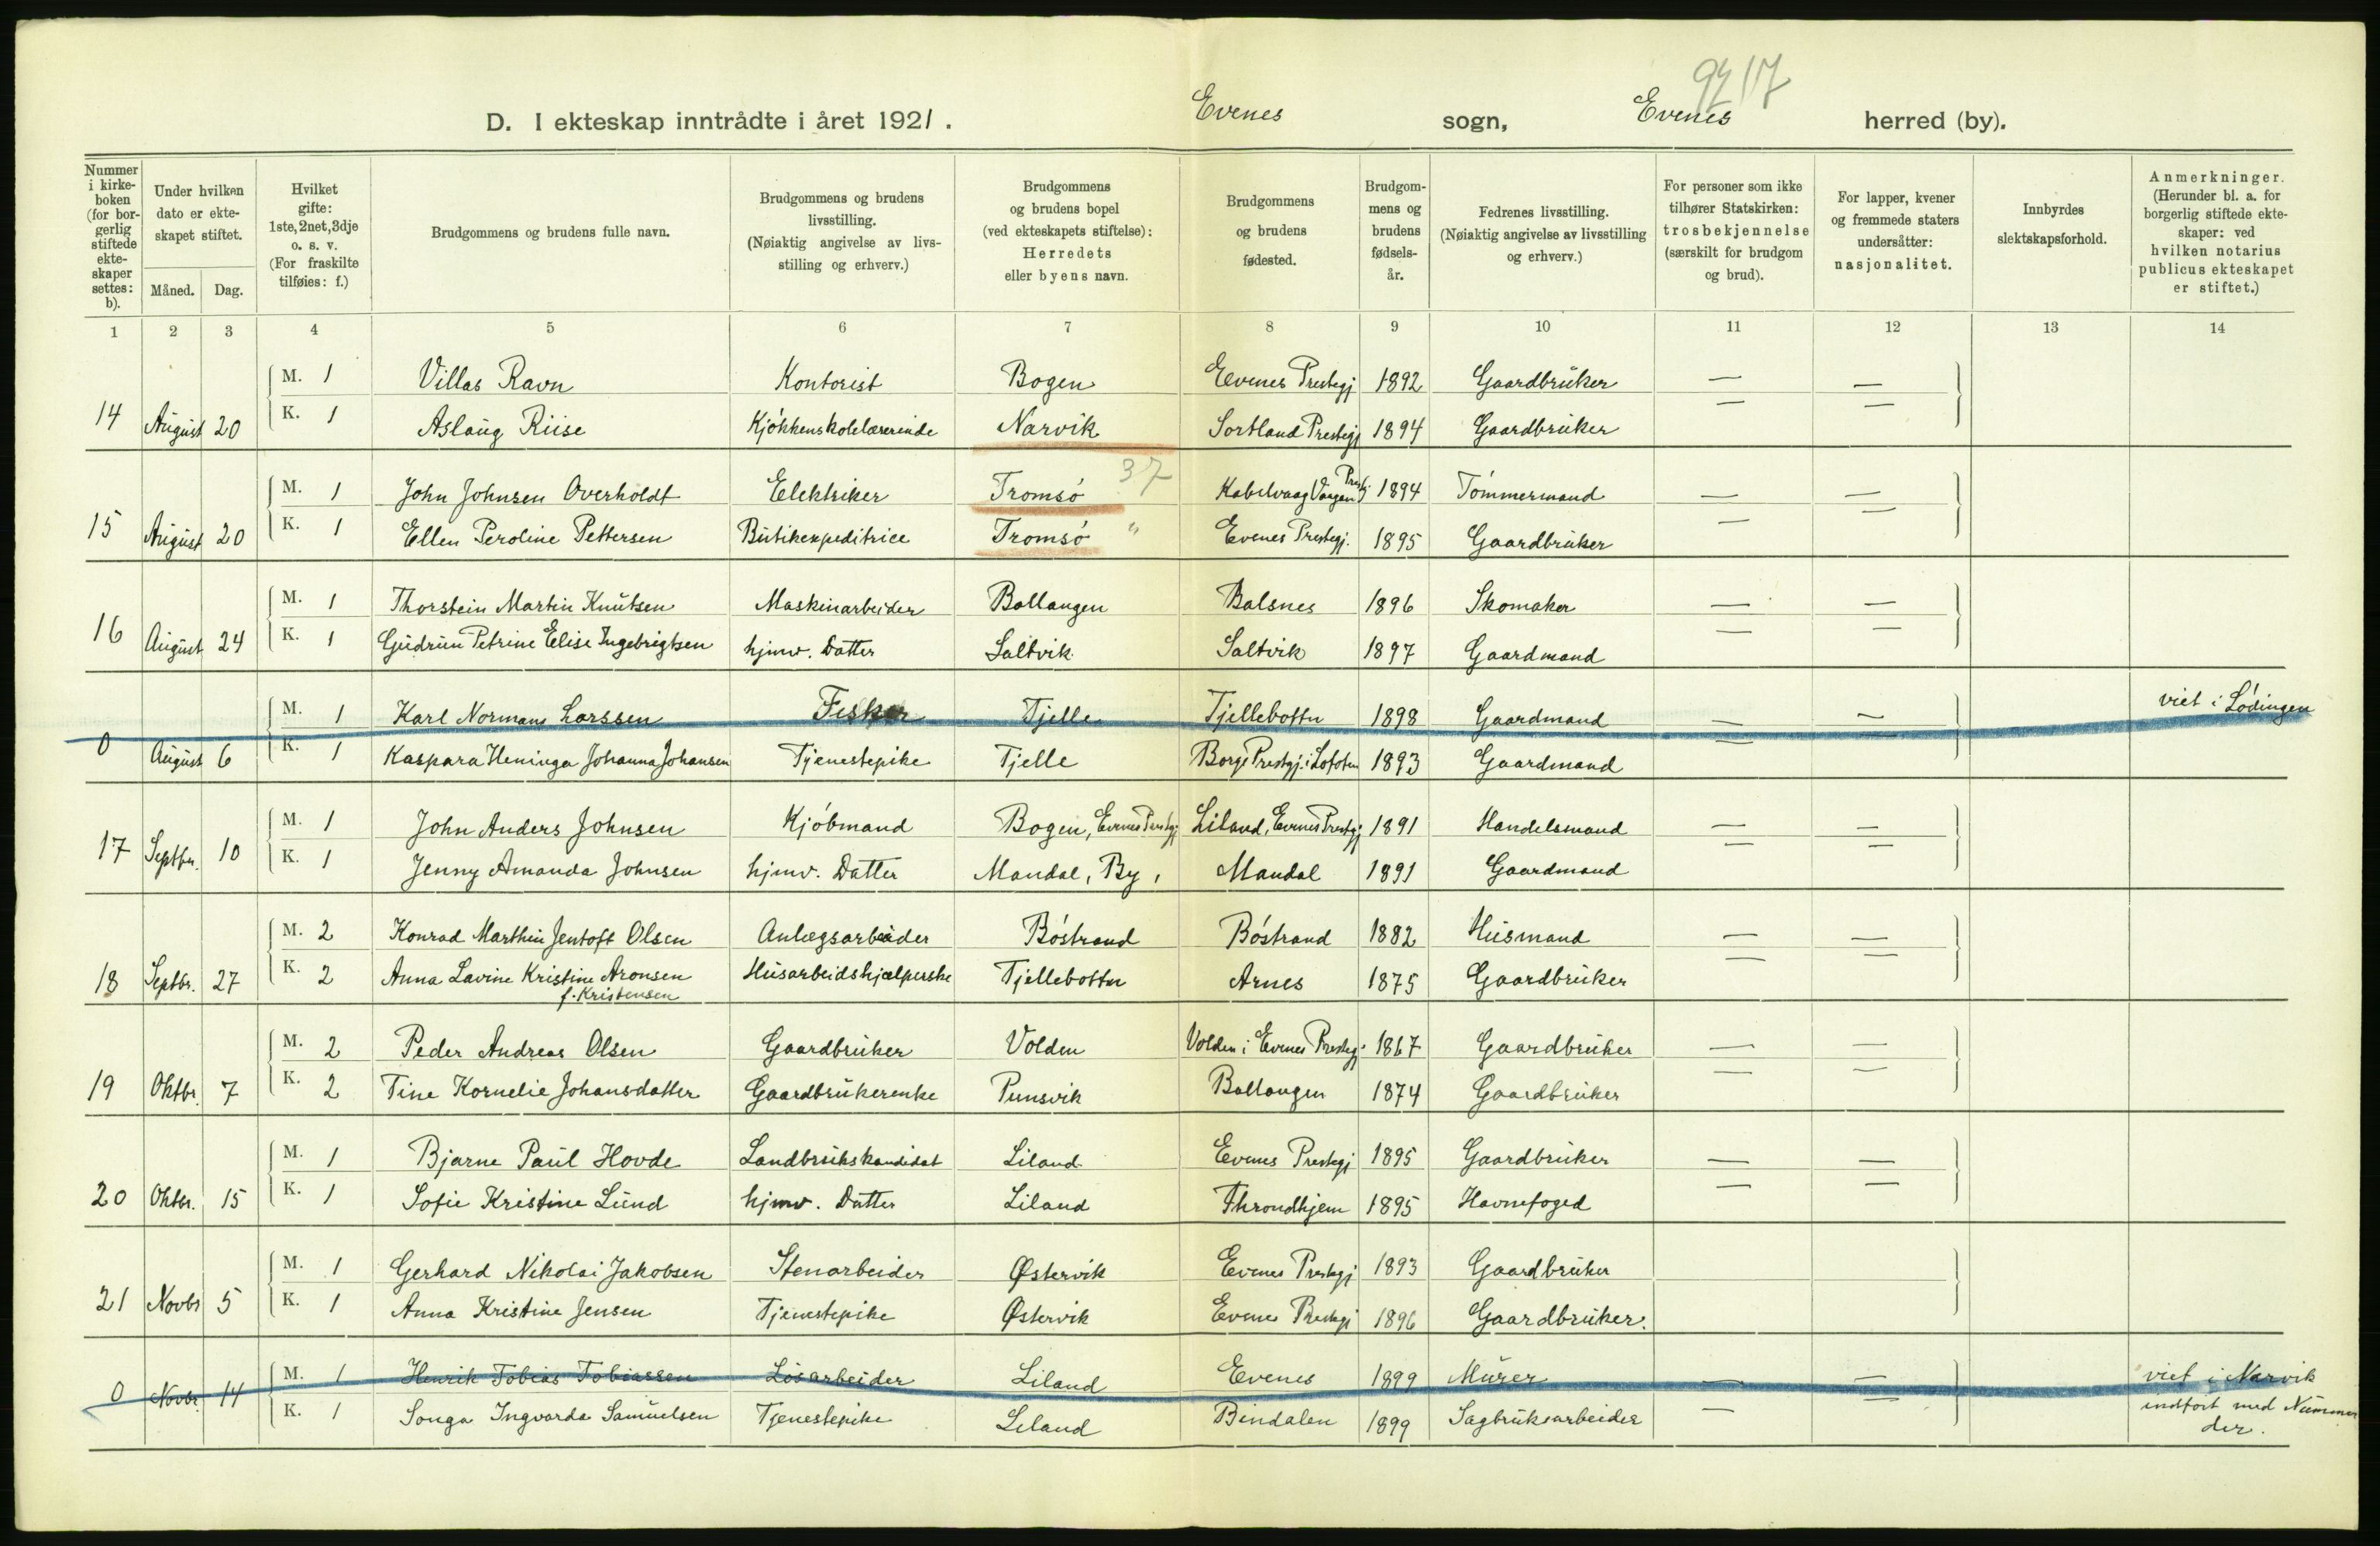 9217
D. I ekteskap inntrådte i året 1921. Evenes sogn, Evenes herred (by).
Nummer i kirke-boken (for bor-gerlig stiftede ekte-skaper settes: b).
Under hvilken dato er ekte-skapet stiftet.
Måned. Dag.
Hvilket gifte: 1ste, 2net, 3dje o. s. v. (For fraskilte tilføies: f.)
Brudgommens og brudens fulle navn.
Brudgommens og brudens livsstilling. (Nøiaktig angivelse av livs-stilling og erhverv.)
Brudgommens og brudens bopel (ved ekteskapets stiftelse): Herredets eller byens navn.
Brudgommens og brudens fødested.
Brudgom-mens og brudens fødsels-år.
Fedrenes livsstilling. (Nøiaktig angivelse av livsstilling og erhverv.)
For personer som ikke tilhører Statskirken: trosbekjennelse (særskilt for brudgom og brud).
For lapper, kvener og fremmede staters undersåtter: nasjonalitet.
Innbyrdes slektskapsforhold.
Anmerkninger. (Herunder bl. a. for borgerlig stiftede ekte-skaper: ved hvilken notarius publicus ekteskapet er stiftet.)
1 2 3 4 5 6 7 8 9 10 11 12 13 14
M. 1 Villas Ravn Kontorist Bogen Evenes Prestegj 1892 Gaardbruker — —
14 August 20 K. 1 Aslaug Riise Kjøkkenskolelærerinde Narvik Sortland Prestegj 1894 Gaardbruker — —
37
M. 1 John Johnsen Overholdt Elektriker Tromsø Kabelvaag Vaagan Prestj 1894 Tømmermand — —
15 August 20 K. 1 Ellen Peroline Pettersen Butikexpeditrice Tromsø " Evenes Prestegj. 1895 Gaardbruker — —
M. 1 Thorstein Martin Knutsen Maskinarbeider Ballangen Balsnes 1896 Skomaker — —
16 August 24 K. 1 Gudrun Petrine Elise Ingebrigtsen hjmv. Datter Saltvik Saltvik 1897 Gaardmand — —
M. 1 Karl Normann Larssen Fisker Tjelle Tjellebotten 1898 Gaardmand — — viet i Lødingen
0 August 6 K. 1 Kaspara Heninga Johanna Johansen Tjenestepike Tjelle Borge Prestgj. i Lofoten 1893 Gaardmand — —
M. 1 John Anders Johnsen Kjøbmand Bogen, Evenes Prestgj Liland, Evenes Prestgj 1891 Handelsmand — —
17 Septbr. 10 K. 1 Jenny Amanda Johnsen hjmv. Datter Mandal, By, Mandal 1891 Gaardmand — —
M. 2 Konrad Marthin Jentoft Olsen Anlegsarbeider Bøstrand Bøstrand 1882 Husmand — —
18 Septbr. 27 K. 2 Anna Lavine Kristine Aronsen Husarbeidshjælperske Tjellebotten Arnes 1875 Gaardbruker — —
f. Kristensen
M. 2 Peder Andreas Olsen Gaardbruker Volden Volden i Evenes Prestegj. 1867 Gaardbruker — —
19 Oktbr. 7 K. 2 Tine Kornelie Johansdatter Gaardbrukerenke Punsvik Ballangen 1874 Gaardbruker — —
M. 1 Bjarne Paul Hovde Landbrukskandidat Liland Evenes Prestegj 1895 Gaardbruker — —
20 Oktbr. 15 K. 1 Sofie Kristine Lund hjmv. Datter Liland Throndhjem 1895 Havnefoged — —
M. 1 Gerhard Nikolai Jakobsen Stenarbeider Østervik Evenes Prestegj 1893 Gaardbruker
21 Novbr 5 K. 1 Anna Kristine Jensen Tjenestepike Østervik Evenes Prestegj 1896 Gaardbruker.
M. 1 Henrik Tobias Tobiassen Løsarbeider Liland Evenes 1899 Murer — — viet i Narvik
0 Novbr. 14 K. 1 Songa Ingvarda Samuelsen Tjenestepike Liland Bindalen 1899 Sagbruksarbeider — — indført med Nummer
der.